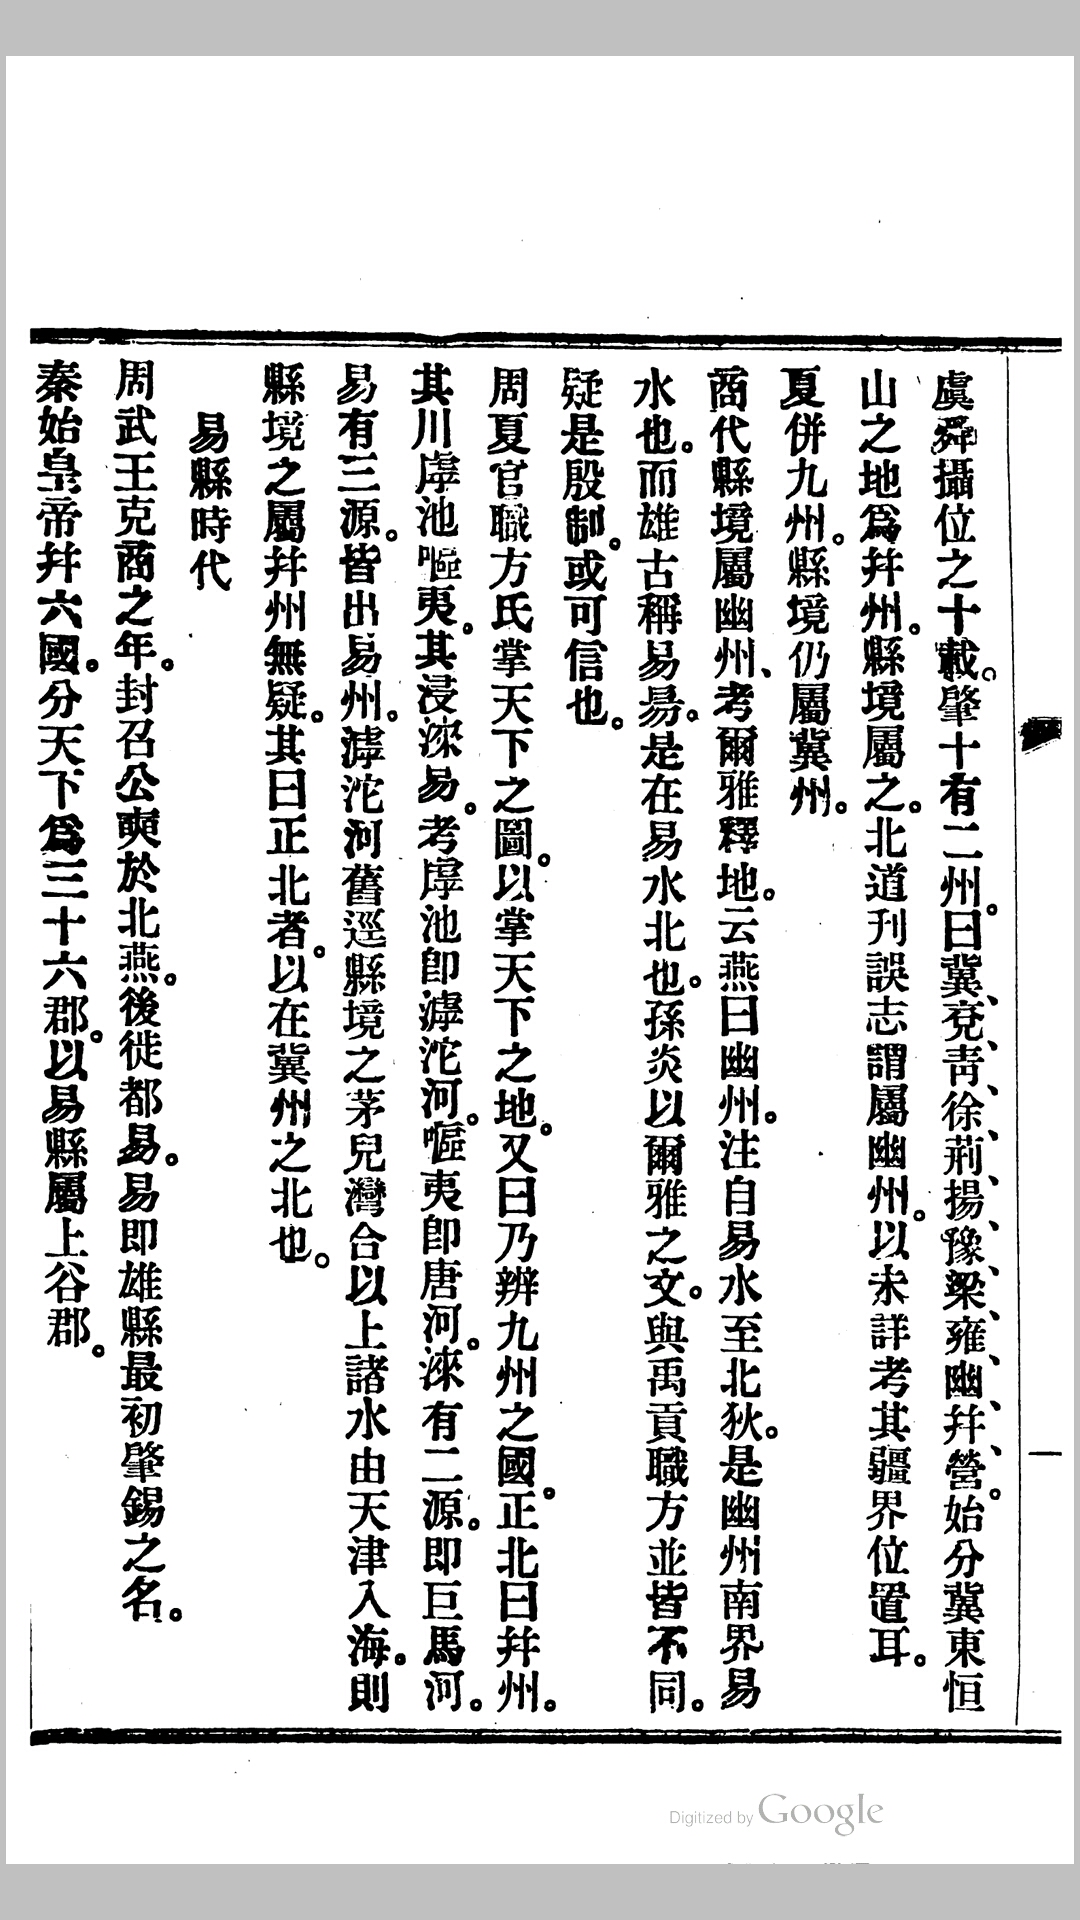 虞舜攝位之十載。肇十有二州。曰冀、兗、靑、徐、荊、揚、豫、梁、雍、幽、幷、營。始分冀東恒
山之地爲幷州。縣境屬之。北道刋誤志謂屬幽州。以未詳考其疆界位置耳。
夏併九州。縣境仍屬冀州。
商代縣境屬幽州、考爾雅釋地。云燕曰幽州。注自易水至北狄。是幽州南界易
水也。而雄古稱易昜。是在易水北也。孫炎以爾雅之文。與禹貢職方並皆不同。
疑是殷制。或可信也。
周夏官職方氏掌天下之圖。以掌天下之地。又曰乃辨九州之國。正北曰幷州。
其川虖池嘔夷。其浸淶易。考虖池卽滹沱河。嘔夷卽唐河。淶有二源。即巨馬河。
易有三源。皆出易州。滹沱河舊逕縣境之茅兒灣合以上諸水由天津入海。則
縣境之屬幷州無疑。其曰正北者。以在冀州之北也。
易縣時代
周武王克商之年。封召公奭於北燕。後徙都易。易即雄縣最初肇錫之名。
秦始皇帝幷六國。分天下爲三十六郡。以易縣屬上谷郡。
一
Digitized by Google